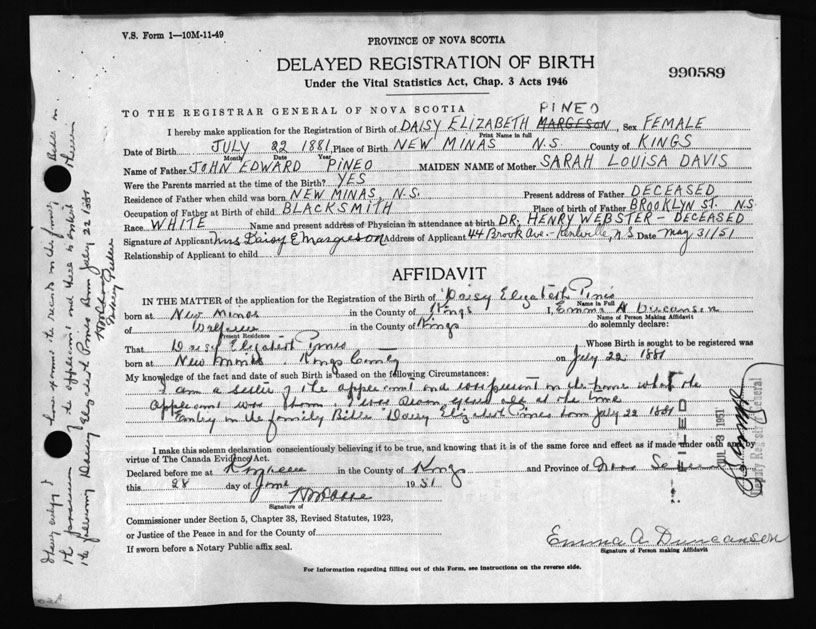 V.S. Form 1—10M-11-49
PROVINCE OF NOVA SCOTIA
DELAYED REGISTRATION OF BIRTH
Under the Vital Statistics Act, Chap. 3 Acts 1946
990589
TO THE REGISTRAR GENERAL OF NOVA SCOTIA
PINEO
I hereby make application for the Registration of Birth of DAISY ELIZABETH MARGESON, Sex FEMALE
Print Name in full
Date of Birth JULY 22 1881, Place of Birth NEW MINAS N.S. County of KINGS
Month Date Year
Name of Father JOHN EDWARD PINEO MAIDEN NAME of Mother SARAH LOUISA DAVIS
Were the Parents married at the time of the Birth? YES
Residence of Father when child was born NEW MINAS, N.S. Present address of Father DECEASED
Occupation of Father at Birth of child BLACKSMITH Place of birth of Father BROOKLYN ST. N.S.
Race WHITE Name and present address of Physician in attendance at birth DR. HENRY WEBSTER - DECEASED
Signature of Applicant Mrs Daisy E Margeson Address of Applicant 44 Brook Ave.- Kentville, N.S Date May 31/51
Relationship of Applicant to child
AFFIDAVIT
IN THE MATTER of the application for the Registration of the Birth of Daisy Elizabeth Pineo
Name in Full
born at New Minas in the County of Kings I, Emma A Duncanson
Name of Person Making Affidavit
of in the County of Kings do solemnly declare:
Present Residence
That Daisy Elizabeth Pineo Whose Birth is sought to be registered was
born at New Minas, Kings County on July 22 1881
My knowledge of the fact and date of such Birth is based on the following Circumstances:
I am a sister of the applicant and was present in the home when the
applicant was born. I was seven years old at the time
Entry in the family Bible "Daisy Elizabeth Pineo born July 22 1881
I make this solemn declaration conscientiously believing it to be true, and knowing that it is of the same force and effect as if made under oath and by
virtue of The Canada Evidence Act.
Declared before me at in the County of Kings and Province of Nova Scotia
this 28 day of June 1951
Signature of
Commissioner under Section 5, Chapter 38, Revised Statutes, 1923,
or Justice of the Peace in and for the County of
If sworn before a Notary Public affix seal.
Emma A. Duncanson
Signature of Person making Affidavit
For Information regarding filling out of this Form, see instructions on the reverse side.
FILED
1951
General
I hereby certify I have examined the records in the family Bible in
the possession of the applicant and there is entered therein
the following Daisy Elizabeth Pineo born July 22 1881
Notary Public